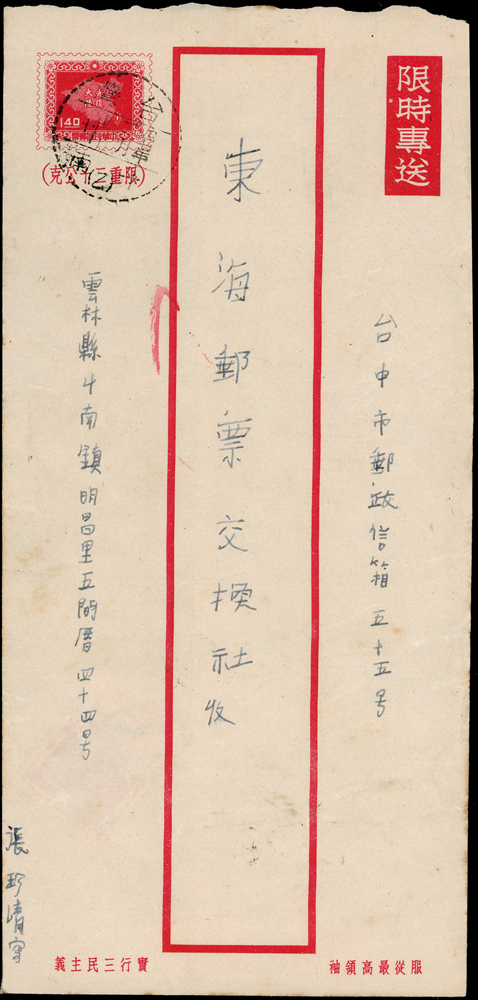 限時專送
台中市郵政信箱五十五号
東海郵票交換社收
140
(限重二十公克)
雲林縣斗南鎮明昌里五間厝四十四号
張
服從最高領袖
實行三民主義